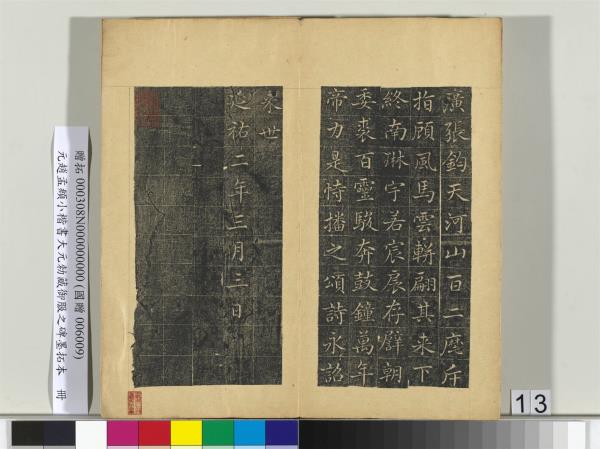 濱張鈞天河山百二麾斥
指顧風馬雲軿翩其来下
終南琳宇若宸扆存辟朝
委裘百靈駿奔鼓鐘萬年
帝力是恃播之頌詩永詔
来世
延祐二年三月三日
贈拓 000308N000000000 (國贈 006009)
元趙孟頫小楷書大元勅藏御服之碑墨拓本 冊
13